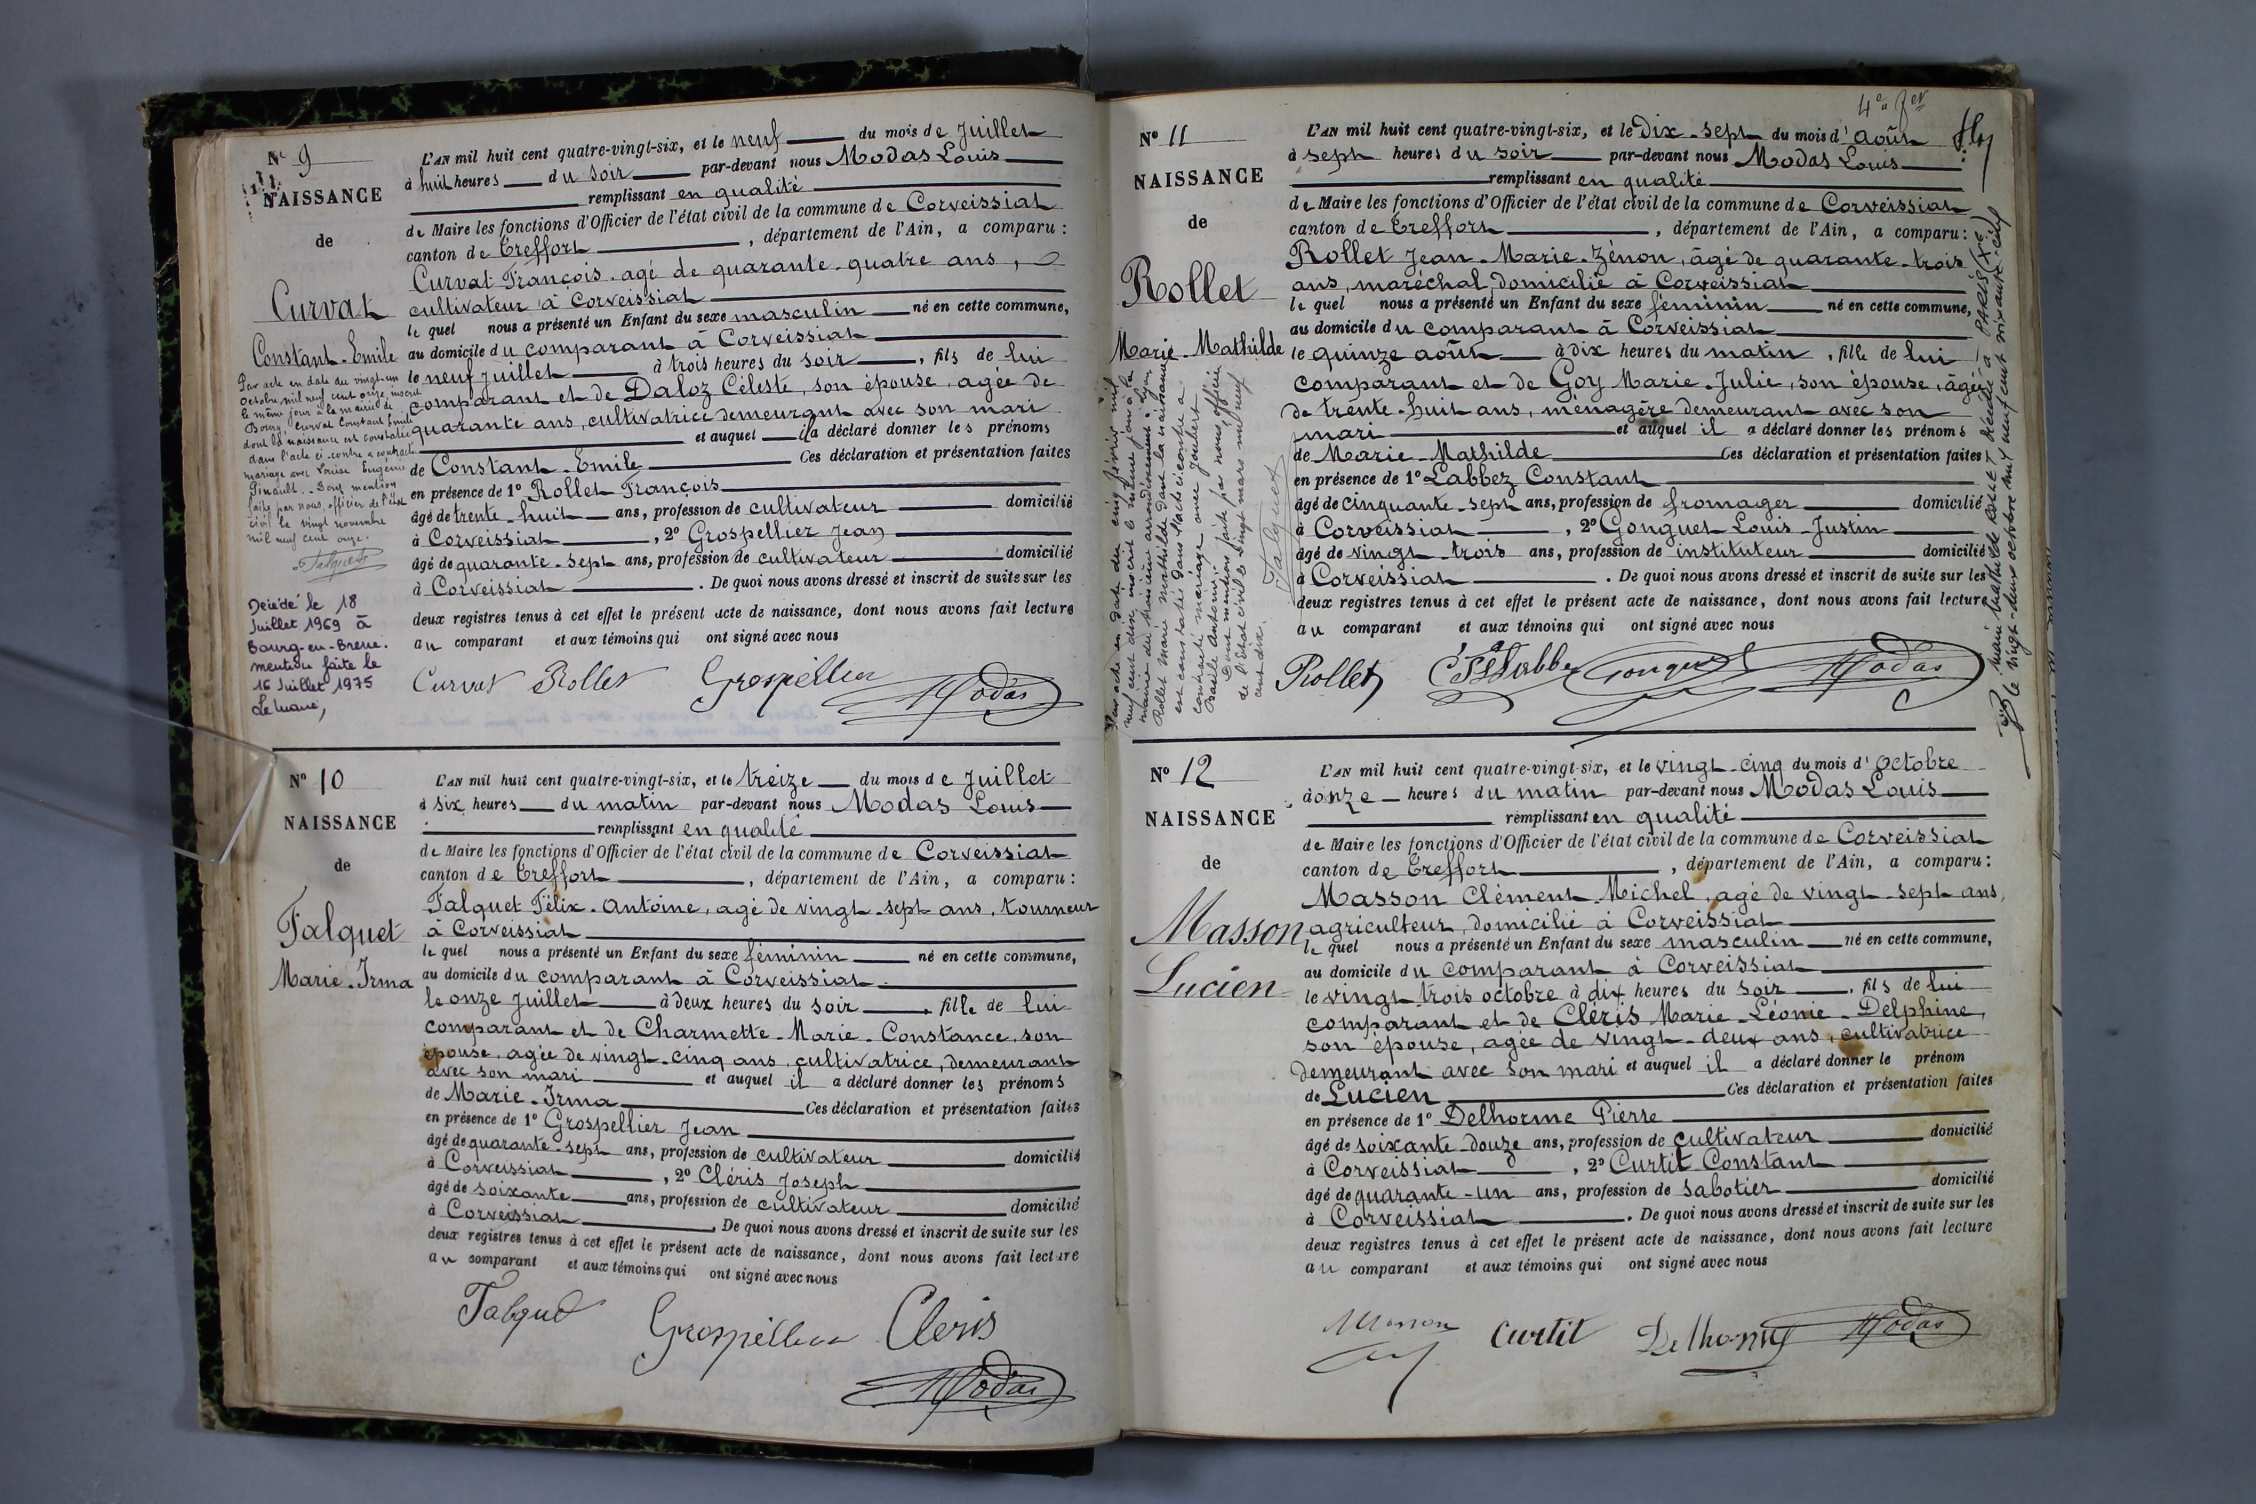 Nº 9
NAISSANCE
de
Curvat
Constant-Emile
Par acte en date du vingt-un
Octobre, mil neuf cent onze, inscrit
le même jour à la mairie de
Bourg, Curval Constant Emile
dont la naissance est constatée
dans l'acte ci-contre a contracté
mariage avec Louise Eugénie
Pinault. Dont mention
faite par nous, officier de l'état
civil le vingt novembre
mil neuf cent onze.
Falquet
Décédé le 18
Juillet 1969 à
Bourg-en-Bresse.
mention faite le
16 Juillet 1975
Le Maire,
L'AN mil huit cent quatre-vingt-six, et le neuf du mois de Juillet
à huit heures du soir par-devant nous Modas Louis
remplissant en qualité
de Maire les fonctions d'Officier de l'état civil de la commune de Corveissiat
canton de Treffort, département de l'Ain, a comparu:
Curvat François, agé de quarante-quatre ans,
cultivateur à Corveissiat
le quel nous a présenté un Enfant du sexe masculin né en cette commune,
au domicile du comparant à Corveissiat
le neuf juillet à trois heures du soir, fils de lui
comparant et de Daloz Céleste, son épouse, agée de
quarante ans, cultivatrice demeurant avec son mari
et auquel il a déclaré donner les prénoms
de Constant-Emile Ces déclaration et présentation faites
en présence de 1º Rollet François
âgé de trente-huit ans, profession de cultivateur domicilié
à Corveissiat, 2º Grospellier Jean
âgé de quarante-sept ans, profession de cultivateur domicilié
à Corveissiat. De quoi nous avons dressé et inscrit de suite sur les
deux registres tenus à cet effet le présent acte de naissance, dont nous avons fait lecture
au comparant et aux témoins qui ont signé avec nous
Curvat Rollet Grospellier Modas
Nº 10
NAISSANCE
de
Falquet
Marie-Irma
L'AN mil huit cent quatre-vingt-six, et le treize du mois de Juillet
à six heures du matin par-devant nous Modas Louis
remplissant en qualité
de Maire les fonctions d'Officier de l'état civil de la commune de Corveissiat
canton de Treffort, département de l'Ain, a comparu:
Falquet Félix-Antoine, agé de vingt-sept ans, tourneur
à Corveissiat
le quel nous a présenté un Enfant du sexe féminin né en cette commune,
au domicile du comparant à Corveissiat
le onze Juillet à deux heures du soir, fille de lui
comparant et de Charmette-Marie-Constance, son
épouse, agée de vingt-cinq ans, cultivatrice, demeurant
avec son mari et auquel il a déclaré donner les prénoms
de Marie-Irma Ces déclaration et présentation faites
en présence de 1º Grospellier Jean
âgé de quarante-sept ans, profession de cultivateur domicilié
à Corveissiat, 2º Cléris Joseph
âgé de soixante ans, profession de cultivateur domicilié
à Corveissiat. De quoi nous avons dressé et inscrit de suite sur les
deux registres tenus à cet effet le présent acte de naissance, dont nous avons fait lecture
au comparant et aux témoins qui ont signé avec nous
Falquet Grospellier Cleris
Modas
Nº 11
NAISSANCE
de
Rollet
Marie-Mathilde
Par acte en date du cinq février mil
neuf cent dix, inscrit le même jour à la
mairie du troisième arrondissement à Lyon
Rollet Marie Mathilde dont la naissance
est constatée dans l'acte ci-contre a
contracté mariage avec Joubert
Basile Antonin
Dont mention faite par nous, officier
de l'état civil le vingt mars mil neuf
cent dix.
Falquet
L'AN mil huit cent quatre-vingt-six, et le Dix-sept du mois d'Août
à sept heures du soir par-devant nous Modas Louis
remplissant en qualité
de Maire les fonctions d'Officier de l'état civil de la commune de Corveissiat
canton de Treffort, département de l'Ain, a comparu:
Rollet Jean-Marie-Zénon, âgé de quarante-trois
ans, maréchal, domicilié à Corveissiat
le quel nous a présenté un Enfant du sexe féminin né en cette commune,
au domicile du comparant à Corveissiat
le quinze août à dix heures du matin, fille de lui
comparant et de Goy Marie-Julie, son épouse, âgée
de trente-huit ans, ménagère demeurant avec son
mari et auquel il a déclaré donner les prénoms
de Marie-Mathilde Ces déclaration et présentation faites
en présence de 1º Labbez Constant
âgé de cinquante-sept ans, profession de fromager domicilié
à Corveissiat, 2º Gonguet Louis-Justin
âgé de vingt-trois ans, profession de instituteur domicilié
à Corveissiat. De quoi nous avons dressé et inscrit de suite sur les
deux registres tenus à cet effet le présent acte de naissance, dont nous avons fait lecture
au comparant et aux témoins qui ont signé avec nous
Rollet Labbez Gonguet Modas
Marie Mathilde ROLLET décédée à PARIS (Xe)
le vingt-deux octobre mil neuf cent soixante-cinq
Nº 12
NAISSANCE
de
Masson
Lucien
L'AN mil huit cent quatre-vingt-six, et le vingt-cinq du mois d'Octobre
à onze heures du matin par-devant nous Modas Louis
remplissant en qualité
de Maire les fonctions d'Officier de l'état civil de la commune de Corveissiat
canton de Treffort, département de l'Ain, a comparu:
Masson Clément-Michel, agé de vingt-sept ans,
agriculteur, domicilié à Corveissiat
le quel nous a présenté un Enfant du sexe masculin né en cette commune,
au domicile du comparant à Corveissiat
le vingt-trois octobre à dix heures du soir, fils de lui
comparant et de Cléris Marie-Léonie-Delphine,
son épouse, agée de vingt-deux ans, cultivatrice
demeurant avec son mari et auquel il a déclaré donner le prénom
de Lucien Ces déclaration et présentation faites
en présence de 1º Delhorme Pierre
âgé de soixante-douze ans, profession de cultivateur domicilié
à Corveissiat, 2º Curtit Constant
âgé de quarante-un ans, profession de sabotier domicilié
à Corveissiat. De quoi nous avons dressé et inscrit de suite sur les
deux registres tenus à cet effet le présent acte de naissance, dont nous avons fait lecture
au comparant et aux témoins qui ont signé avec nous
Masson Curtit Delhorme Modas